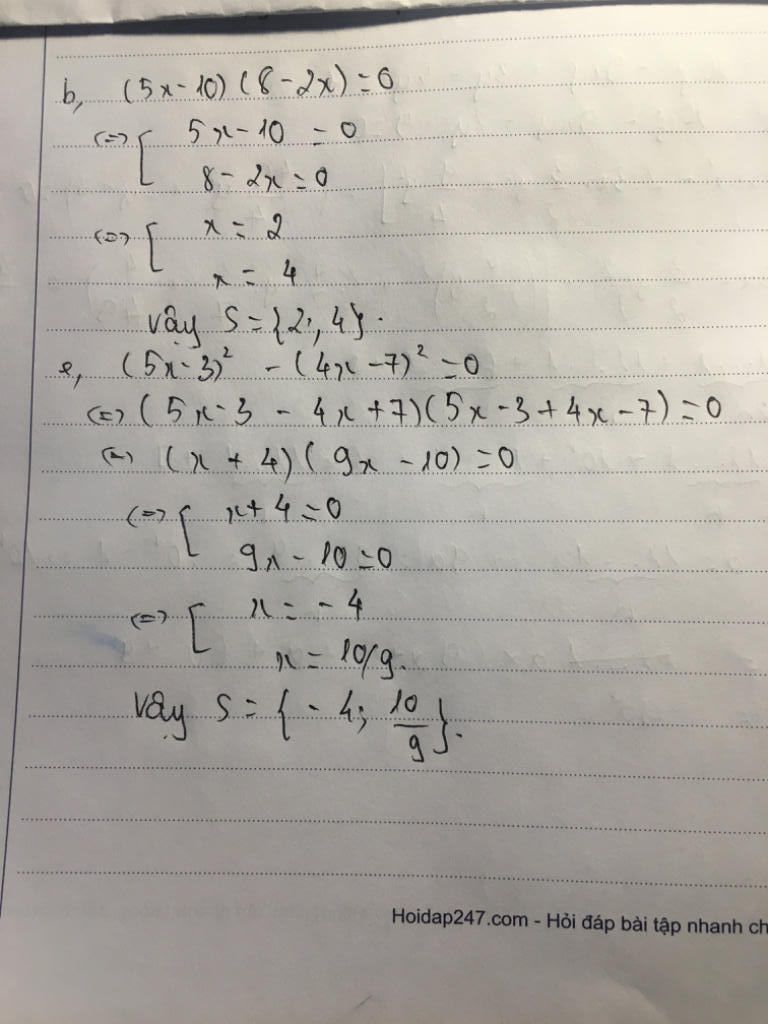 b, (5x-10)(8-2x)=0
(=) [ 5x-10 = 0
8-2x=0
(=) [ x = 2
x = 4
Vậy S={2;,4}.
e, (5x-3)² - (4x-7)²=0
(=) (5x-3 - 4x+7)(5x-3+4x-7)=0
(=) (x+4)(9x-10)=0
(=) [ x+4=0
9x-10=0
(=) [ x = -4
x = 10/9.
Vậy S = {-4; 10/9}.
Hoidap247.com - Hỏi đáp bài tập nhanh ch